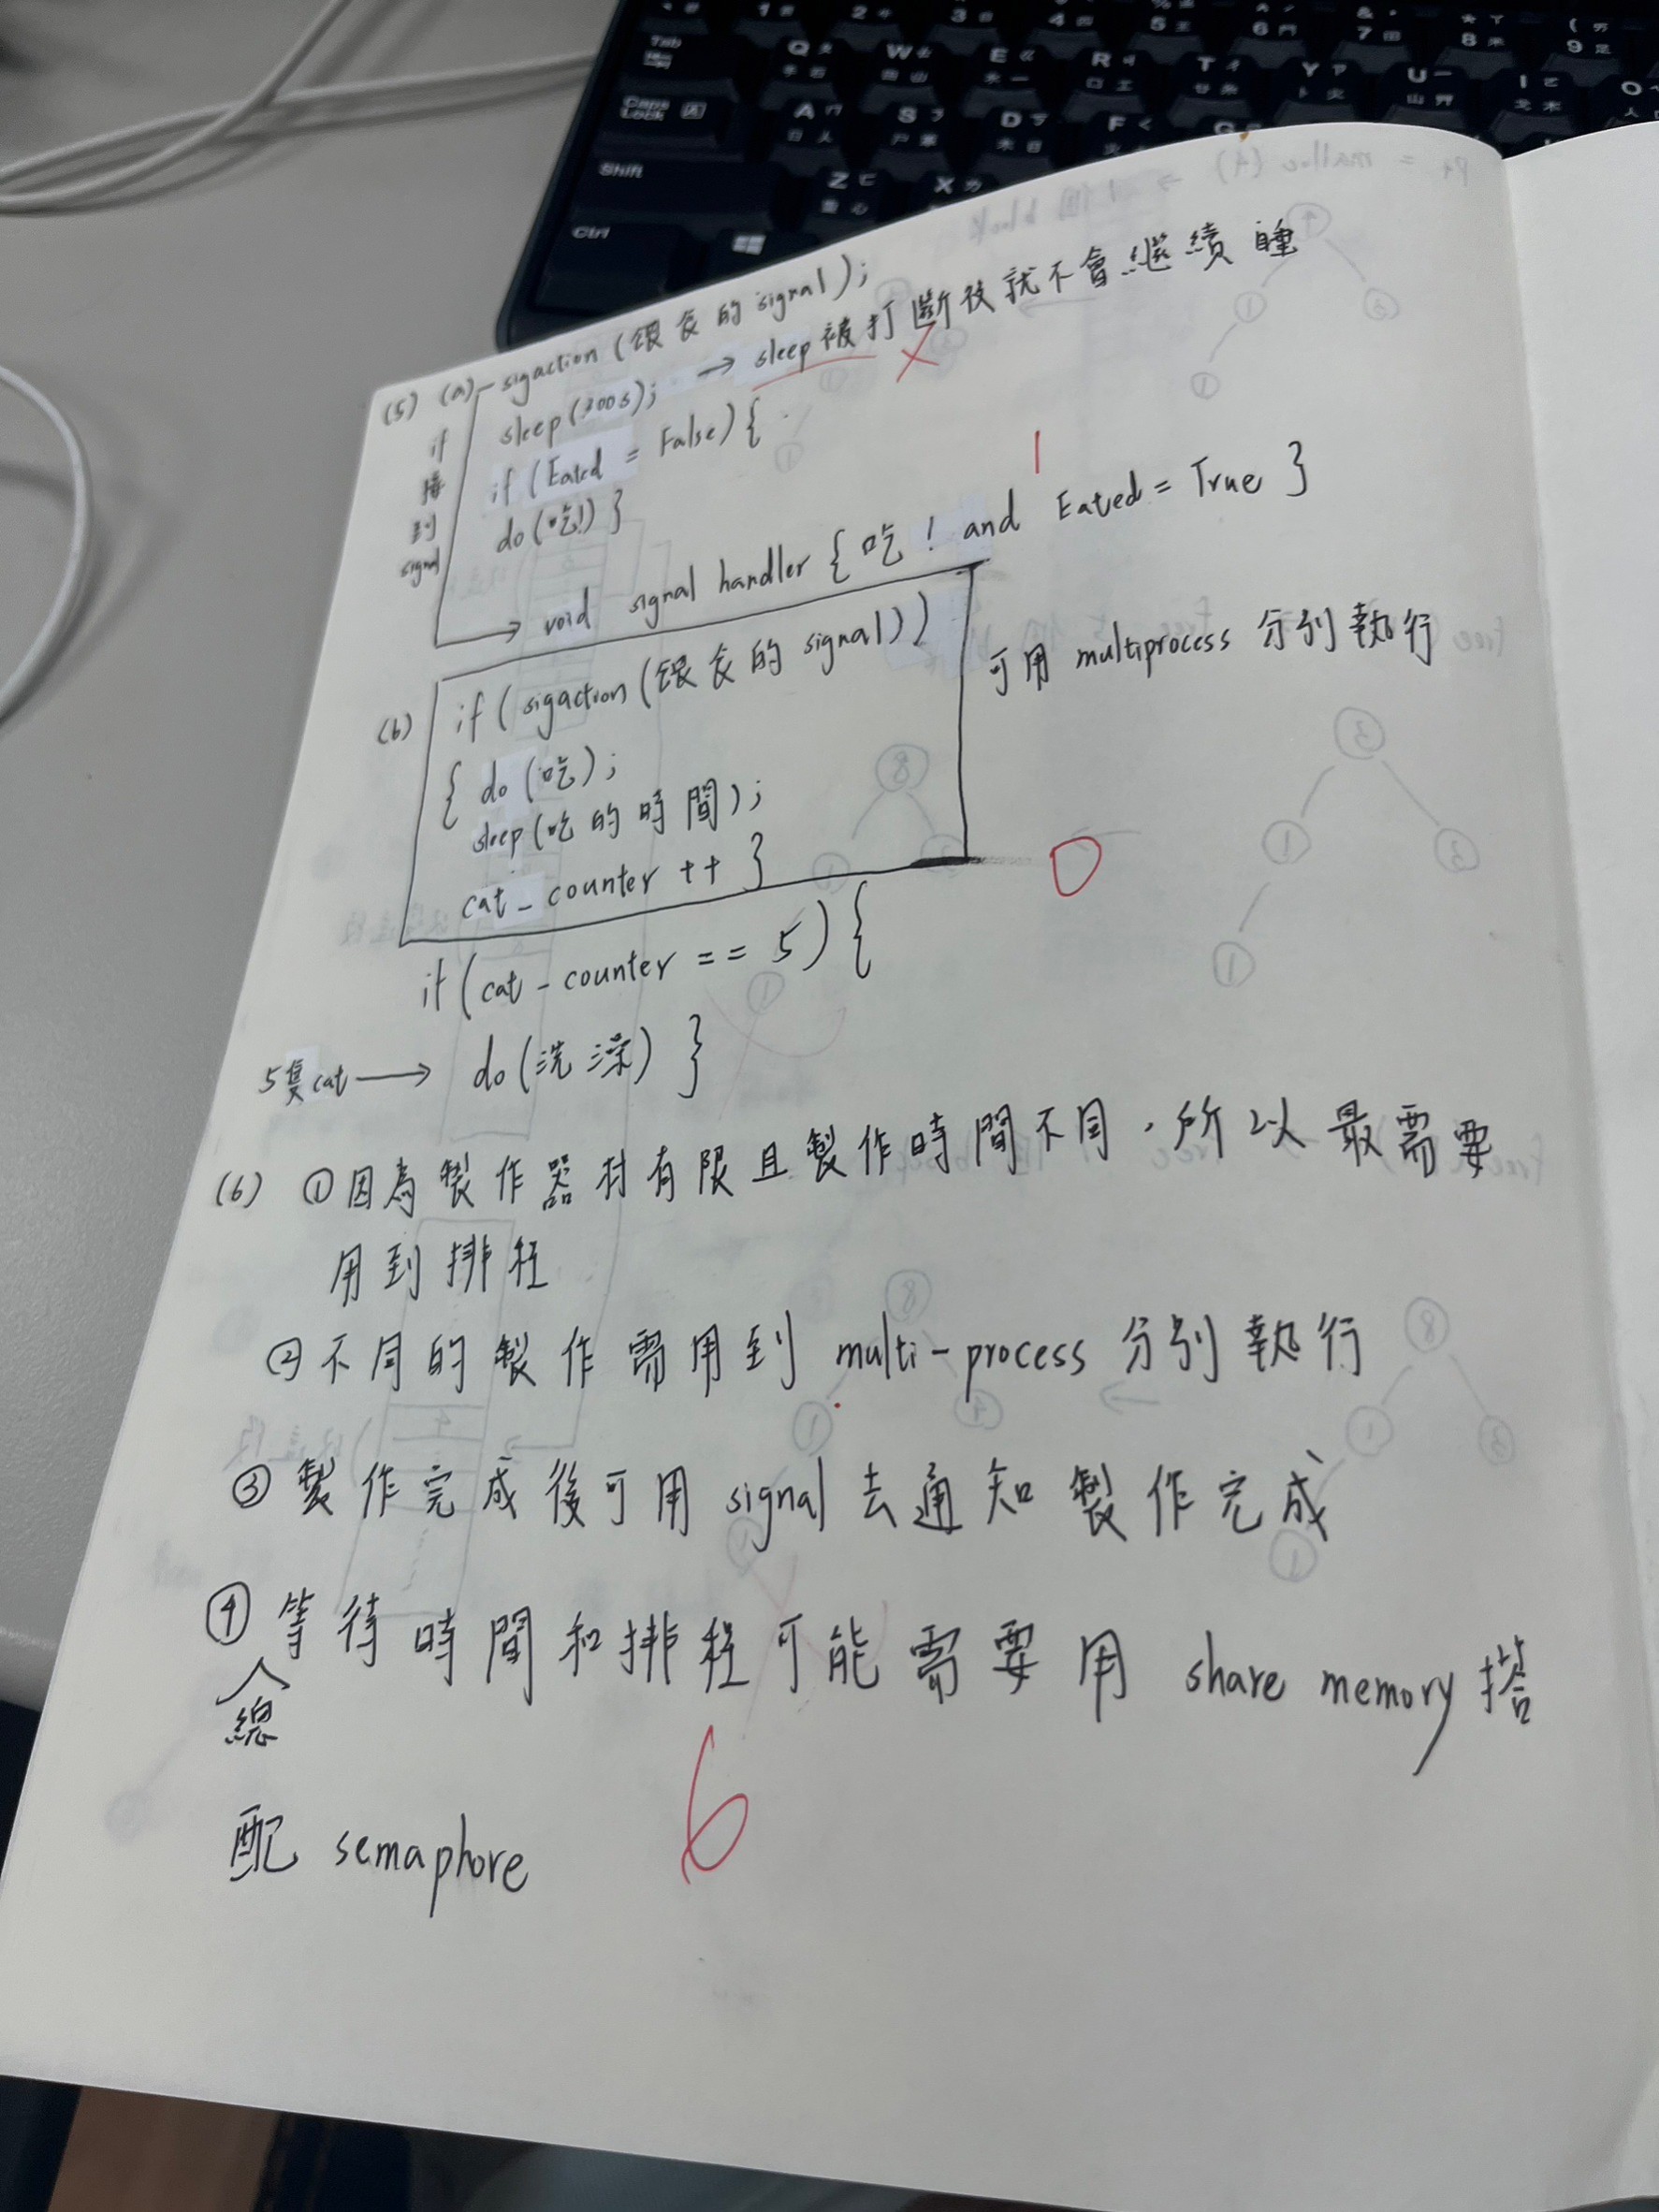 (5) (a) sigaction (餵食的 signal);
sleep(300s); → sleep 被打斷後就不會繼續睡
if (Eated = False) {
do (吃!) }
if
接
到
signal
1
→ void signal handler { 吃! and Eated = True }
(b) if ( sigaction (餵食的 signal))
{ do (吃);
sleep(吃的時間);
cat_counter ++ }
可用 multiprocess 分別執行
0
if (cat_counter == 5) {
5隻cat → do (洗澡) }
(6) ①因為製作器材有限且製作時間不同，所以最需要
用到排程
②不同的製作需用到 multi-process 分別執行
③製作完成後可用 signal 去通知製作完成
④總等待時間和排程可能需要用 share memory 搭
配 semaphore
6
Tab
Caps Lock
Shift
Ctrl
Q W E R T Y U I O
A S D F
Z X